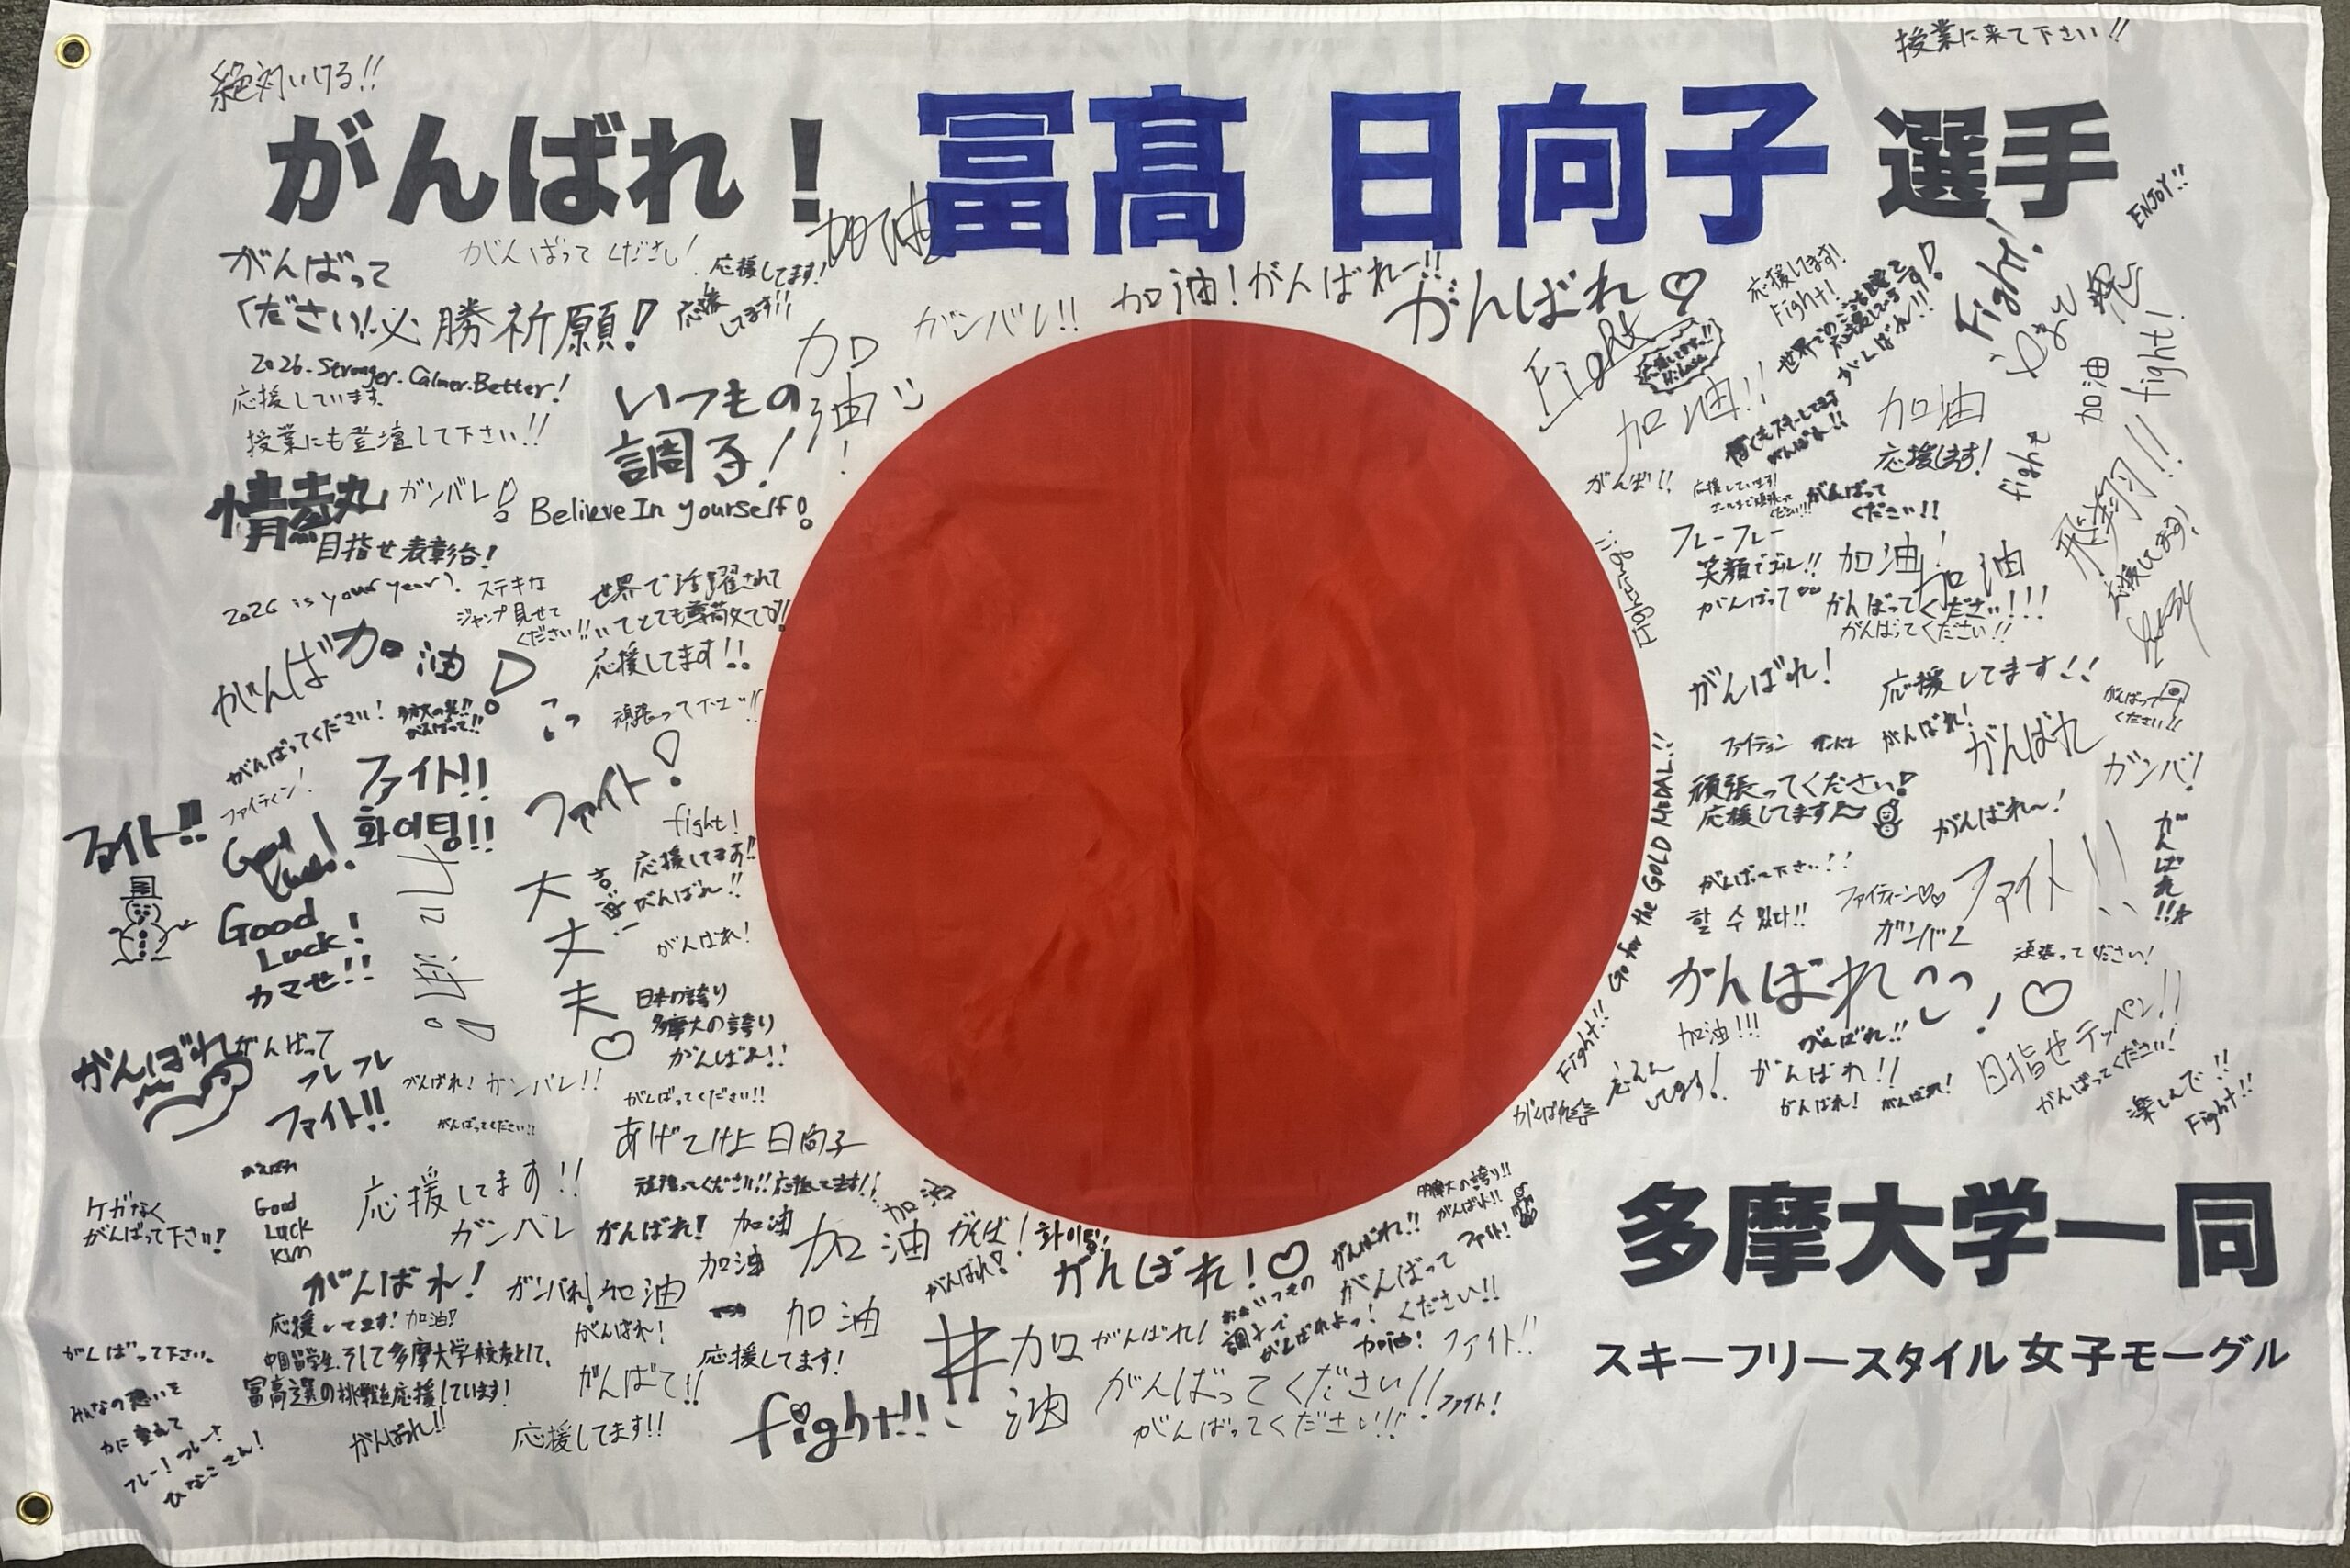 授業に来て下さい!!
絶対いける!!
がんばれ！冨髙 日向子 選手
ENJOY!!
加油
がんばって
ください!!
がんばってください!
応援してます!
応援
してます!!
必勝祈願!
加油!がんばれー!!
ガンバレ!!
がんばれ♡
応援してます!
Fight!
Fight!
fight!
Fight
加油!!
加油
加油
応援します!
fight
2026.Stronger.Calmer.Better!
応援しています
授業にも登壇して下さい!!
いつもの
調子!
加
油
!
情熱
ガンバレ!
Believe In yourself!
目指せ表彰台!
2026 is your year!
ステキな
ジャンプ見せて
ください!!
世界で活躍されて
いてとても尊敬です!!
応援してます!!
がんば加油!
がんばってください!
頑張って下さい!!
がんば!!
がんばって
ください!!
フレーフレー
笑顔でゴール!!
がんばって
加油!
加油
がんばってください!!!
がんばってください!!
飛翔!!
応援してます!
がんばれ!
応援してます!!
がんばって
ください!!
ファイティン
がんばれ!
がんばれ
ガンバ!
頑張ってください!
応援してます
がんばれ〜!
がんばれ!!
がんばって下さい!!
할 수 있다!!
ファイティーン♡♡
ファイト!!
ガンバレ
Go for the GOLD MEDAL!!
Fight!!
ファイティン!
ファイト!!
화이팅!!
ファイト!!
Good
Luck!
ファイト!
fight!
応援してます!!
がんばれ!!
がんばれ!
大
丈
夫
♡
Good
Luck!
カマせ!!
日本の誇り
多摩大の誇り
がんばれ!!
がんばれ
がんばって
フレフレ
ファイト!!
がんばれ! ガンバレ!!
がんばってください!!
がんばってください!!
あげてけよ 日向子
頑張ってください!!応援してます!!
がんばれ!♡
頑張ってください!
加油!!!
がんばれ!!
がんばれ!!
がんばれ!
がんばれ!
目指せテッペン!!
がんばってください!
楽しんで!!
Fight!!
ケガなく
がんばって下さい!
Good
Luck
Kim
応援してます!!
ガンバレ
がんばれ!
加油
加油
加油
加油
がんば!
화이팅!!
がんばれ!
がんばれ!♡
がんばれ!!
多摩大の誇り!!
がんばれ!!
ファイト!
がんばって
ください!!
多摩大学一同
スキーフリースタイル 女子モーグル
がんばれ!
ガンバれ!
加油
応援してます! 加油!
中国留学生、そして多摩大学校友として、
冨高選の挑戦を応援しています!
がんばれ!!
がんばれ!
がんばて!!
応援してます!!
加油
応援してます!
fight!!
#加
油
がんばれ!
調子で
がんばれよっ!
加油!
ファイト!!
がんばってください!!
がんばってください!!!
ファイト!
がんばって下さい。
みんなの思いを
力に変えて
フレー!フレー!
ひなこさん!